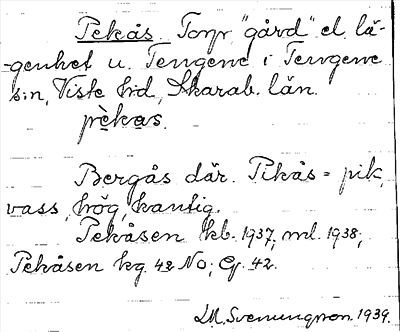 Pekås. Torp, "gård" el. lä-
genhet u. Tengene i Tengene
s:n, Viste hd, Skarab. län.
pèkas.
Bergås där. Pikås = pik,
vass, hög, kantig.
Pekåsen kb. 1937, ml. 1938;
Pekåsen kg. 42 NO; Cg. 42.
LM. Svenungsson. 1939.